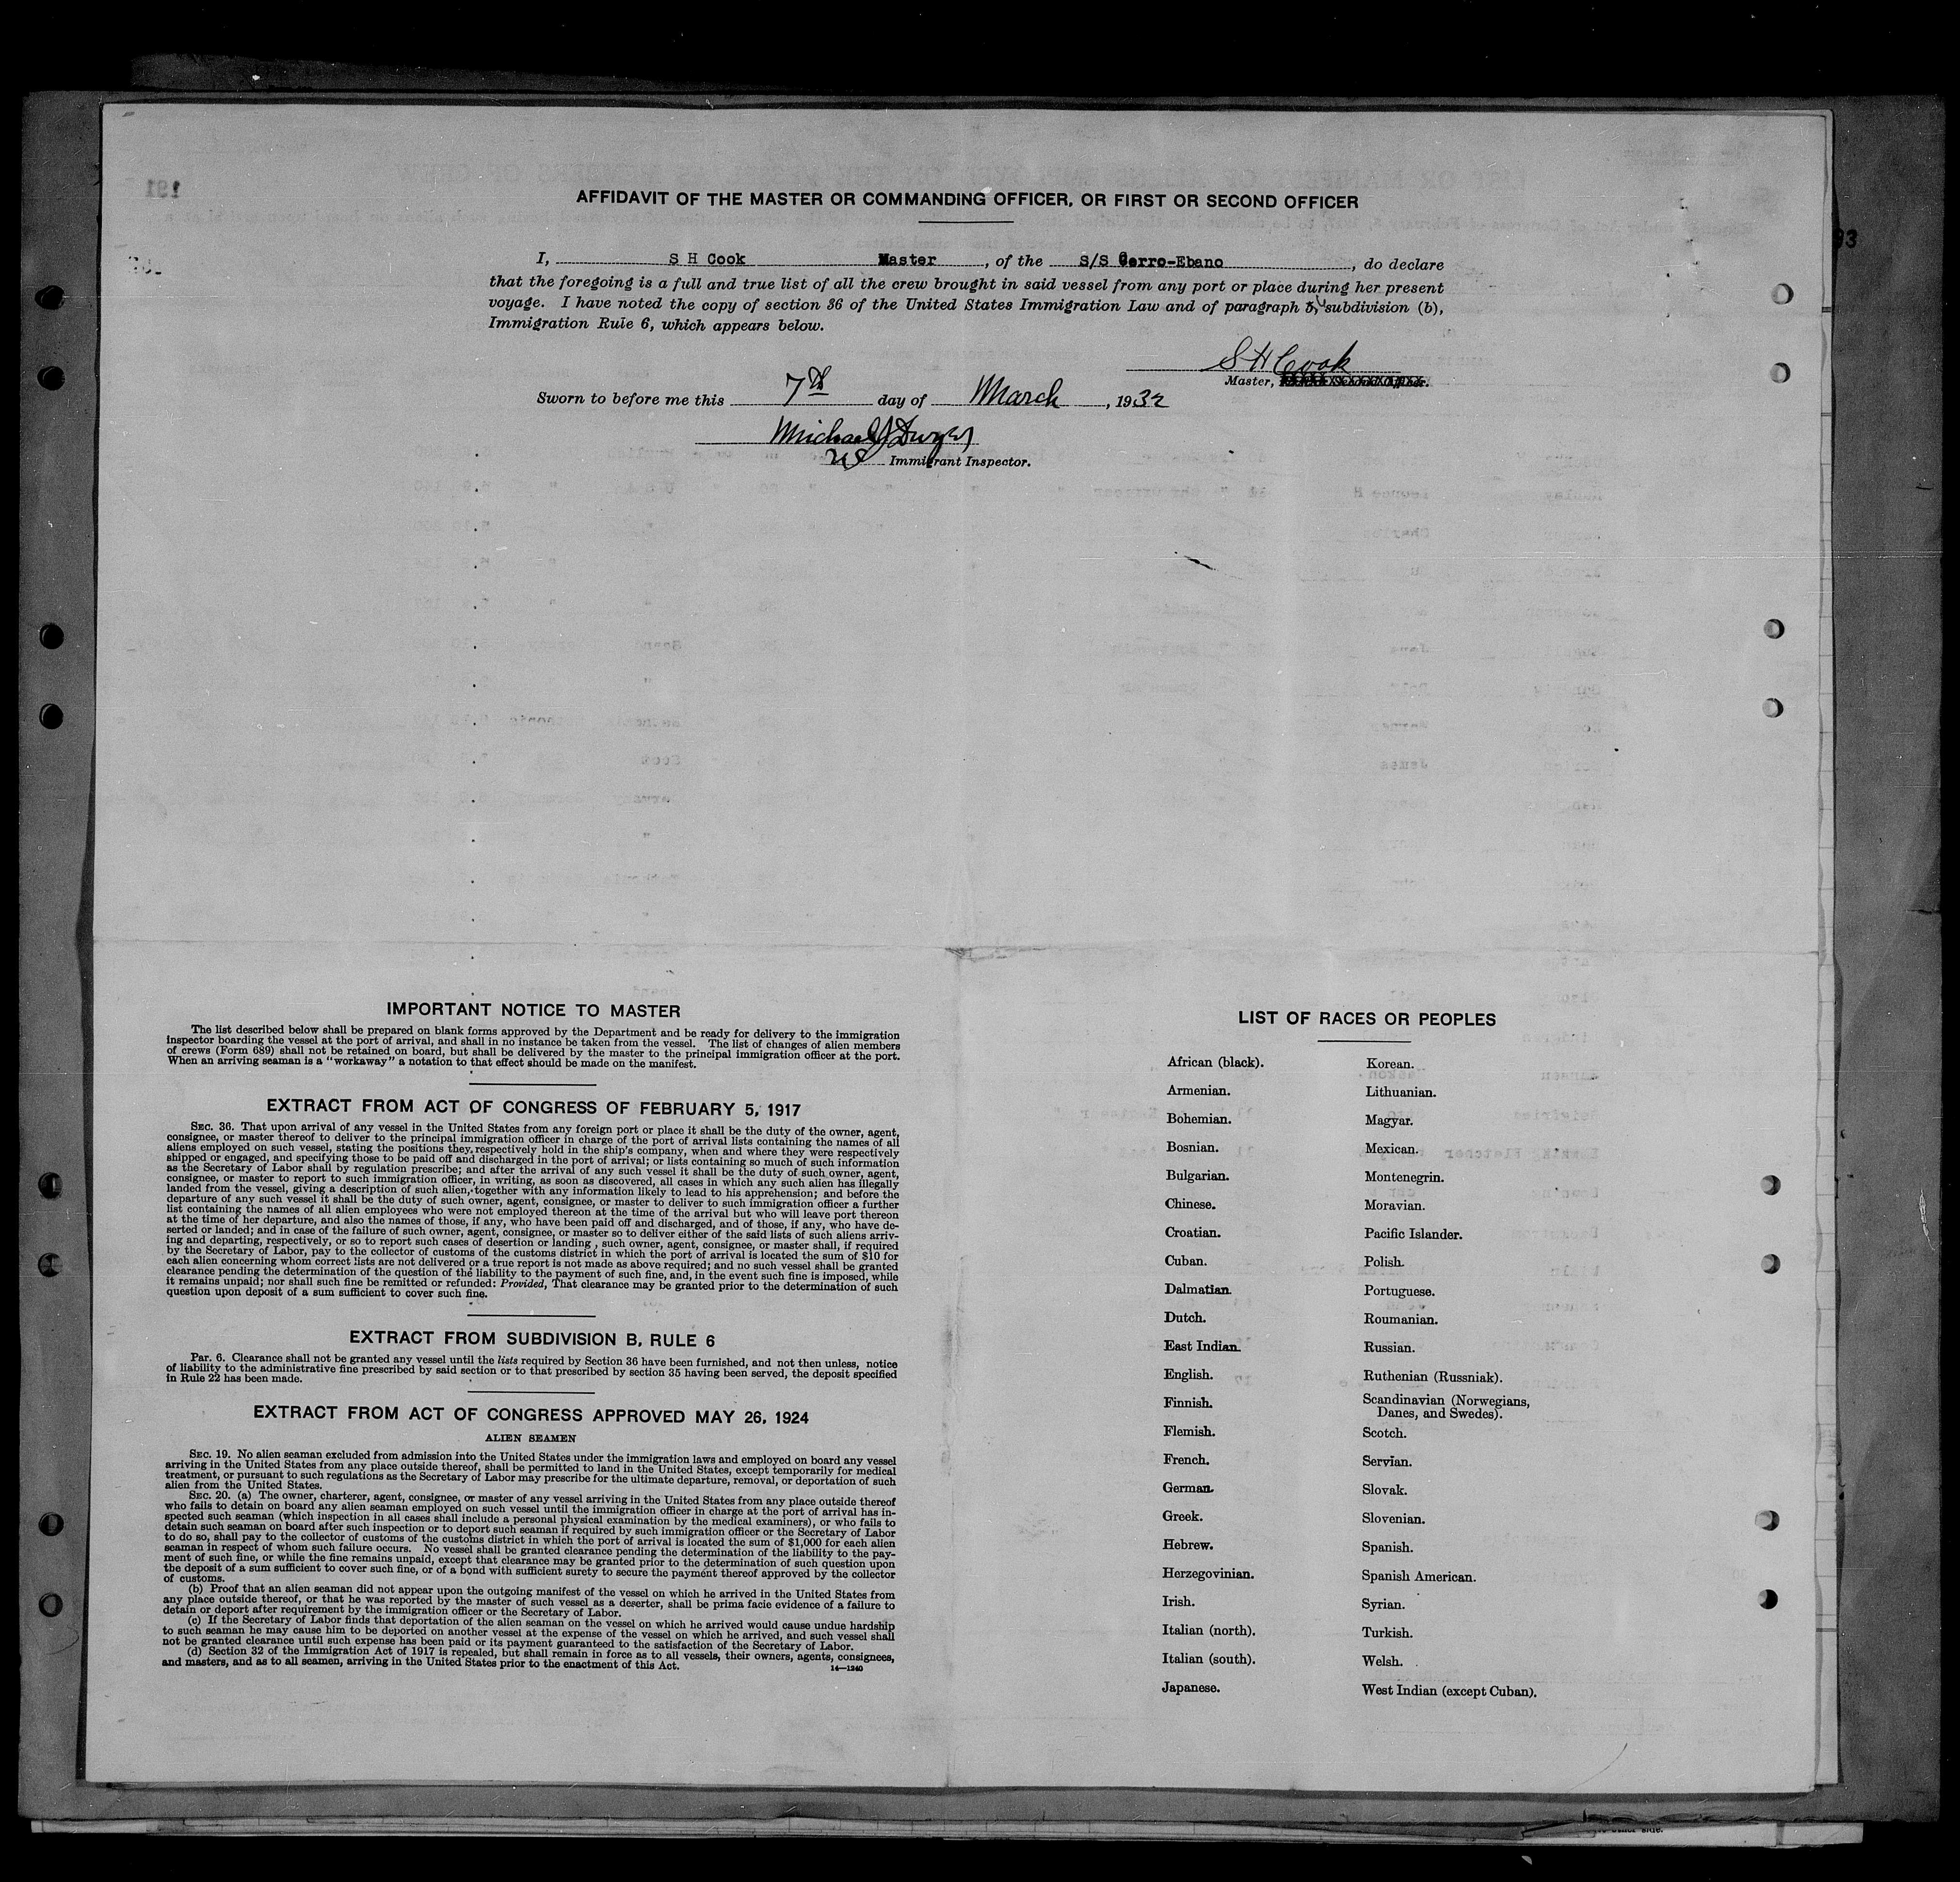 AFFIDAVIT OF THE MASTER OR COMMANDING OFFICER, OR FIRST OR SECOND OFFICER
I, S H Cook Master, of the S/S Cerro-Ebano, do declare
that the foregoing is a full and true list of all the crew brought in said vessel from any port or place during her present
voyage. I have noted the copy of section 36 of the United States Immigration Law and of paragraph 5, subdivision (b),
Immigration Rule 6, which appears below.
S H Cook
Master,
Sworn to before me this 7th day of March, 1932
Michael J Dwyer
US Immigrant Inspector.
IMPORTANT NOTICE TO MASTER
The list described below shall be prepared on blank forms approved by the Department and be ready for delivery to the immigration
inspector boarding the vessel at the port of arrival, and shall in no instance be taken from the vessel. The list of changes of alien members
of crews (Form 689) shall not be retained on board, but shall be delivered by the master to the principal immigration officer at the port.
When an arriving seaman is a "workaway" a notation to that effect should be made on the manifest.
EXTRACT FROM ACT OF CONGRESS OF FEBRUARY 5, 1917
SEC. 36. That upon arrival of any vessel in the United States from any foreign port or place it shall be the duty of the owner, agent,
consignee, or master thereof to deliver to the principal immigration officer in charge of the port of arrival lists containing the names of all
aliens employed on such vessel, stating the positions they respectively hold in the ship's company, when and where they were respectively
shipped or engaged, and specifying those to be paid off and discharged in the port of arrival; or lists containing so much of such information
as the Secretary of Labor shall by regulation prescribe; and after the arrival of any such vessel it shall be the duty of such owner, agent,
consignee, or master to report to such immigration officer, in writing, as soon as discovered, all cases in which any such alien has illegally
landed from the vessel, giving a description of such alien, together with any information likely to lead to his apprehension; and before the
departure of any such vessel it shall be the duty of such owner, agent, consignee, or master to deliver to such immigration officer a further
list containing the names of all alien employees who were not employed thereon at the time of the arrival but who will leave port thereon
at the time of her departure, and also the names of those, if any, who have been paid off and discharged, and of those, if any, who have de-
serted or landed; and in case of the failure of such owner, agent, consignee, or master so to deliver either of the said lists of such aliens arriv-
ing and departing, respectively, or so to report such cases of desertion or landing, such owner, agent, consignee, or master shall, if required
by the Secretary of Labor, pay to the collector of customs of the customs district in which the port of arrival is located the sum of $10 for
each alien concerning whom correct lists are not delivered or a true report is not made as above required; and no such vessel shall be granted
clearance pending the determination of the question of the liability to the payment of such fine, and, in the event such fine is imposed, while
it remains unpaid; nor shall such fine be remitted or refunded: Provided, That clearance may be granted prior to the determination of such
question upon deposit of a sum sufficient to cover such fine.
EXTRACT FROM SUBDIVISION B, RULE 6
Par. 6. Clearance shall not be granted any vessel until the lists required by Section 36 have been furnished, and not then unless, notice
of liability to the administrative fine prescribed by said section or to that prescribed by section 35 having been served, the deposit specified
in Rule 22 has been made.
EXTRACT FROM ACT OF CONGRESS APPROVED MAY 26, 1924
ALIEN SEAMEN
SEC. 19. No alien seaman excluded from admission into the United States under the immigration laws and employed on board any vessel
arriving in the United States from any place outside thereof, shall be permitted to land in the United States, except temporarily for medical
treatment, or pursuant to such regulations as the Secretary of Labor may prescribe for the ultimate departure, removal, or deportation of such
alien from the United States.
SEC. 20. (a) The owner, charterer, agent, consignee, or master of any vessel arriving in the United States from any place outside thereof
who fails to detain on board any alien seaman employed on such vessel until the immigration officer in charge at the port of arrival has in-
spected such seaman (which inspection in all cases shall include a personal physical examination by the medical examiners), or who fails to
detain such seaman on board after such inspection or to deport such seaman if required by such immigration officer or the Secretary of Labor
to do so, shall pay to the collector of customs of the customs district in which the port of arrival is located the sum of $1,000 for each alien
seaman in respect of whom such failure occurs. No vessel shall be granted clearance pending the determination of the liability to the pay-
ment of such fine, or while the fine remains unpaid, except that clearance may be granted prior to the determination of such question upon
the deposit of a sum sufficient to cover such fine, or of a bond with sufficient surety to secure the payment thereof approved by the collector
of customs.
(b) Proof that an alien seaman did not appear upon the outgoing manifest of the vessel on which he arrived in the United States from
any place outside thereof, or that he was reported by the master of such vessel as a deserter, shall be prima facie evidence of a failure to
detain or deport after requirement by the immigration officer or the Secretary of Labor.
(c) If the Secretary of Labor finds that deportation of the alien seaman on the vessel on which he arrived would cause undue hardship
to such seaman he may cause him to be deported on another vessel at the expense of the vessel on which he arrived, and such vessel shall
not be granted clearance until such expense has been paid or its payment guaranteed to the satisfaction of the Secretary of Labor.
(d) Section 32 of the Immigration Act of 1917 is repealed, but shall remain in force as to all vessels, their owners, agents, consignees,
and masters, and as to all seamen, arriving in the United States prior to the enactment of this Act.
14—1240
LIST OF RACES OR PEOPLES
African (black).
Armenian.
Bohemian.
Bosnian.
Bulgarian.
Chinese.
Croatian.
Cuban.
Dalmatian.
Dutch.
East Indian.
English.
Finnish.
Flemish.
French.
German.
Greek.
Hebrew.
Herzegovinian.
Irish.
Italian (north).
Italian (south).
Japanese.
Korean.
Lithuanian.
Magyar.
Mexican.
Montenegrin.
Moravian.
Pacific Islander.
Polish.
Portuguese.
Roumanian.
Russian.
Ruthenian (Russniak).
Scandinavian (Norwegians,
Danes, and Swedes).
Scotch.
Servian.
Slovak.
Slovenian.
Spanish.
Spanish American.
Syrian.
Turkish.
Welsh.
West Indian (except Cuban).
93